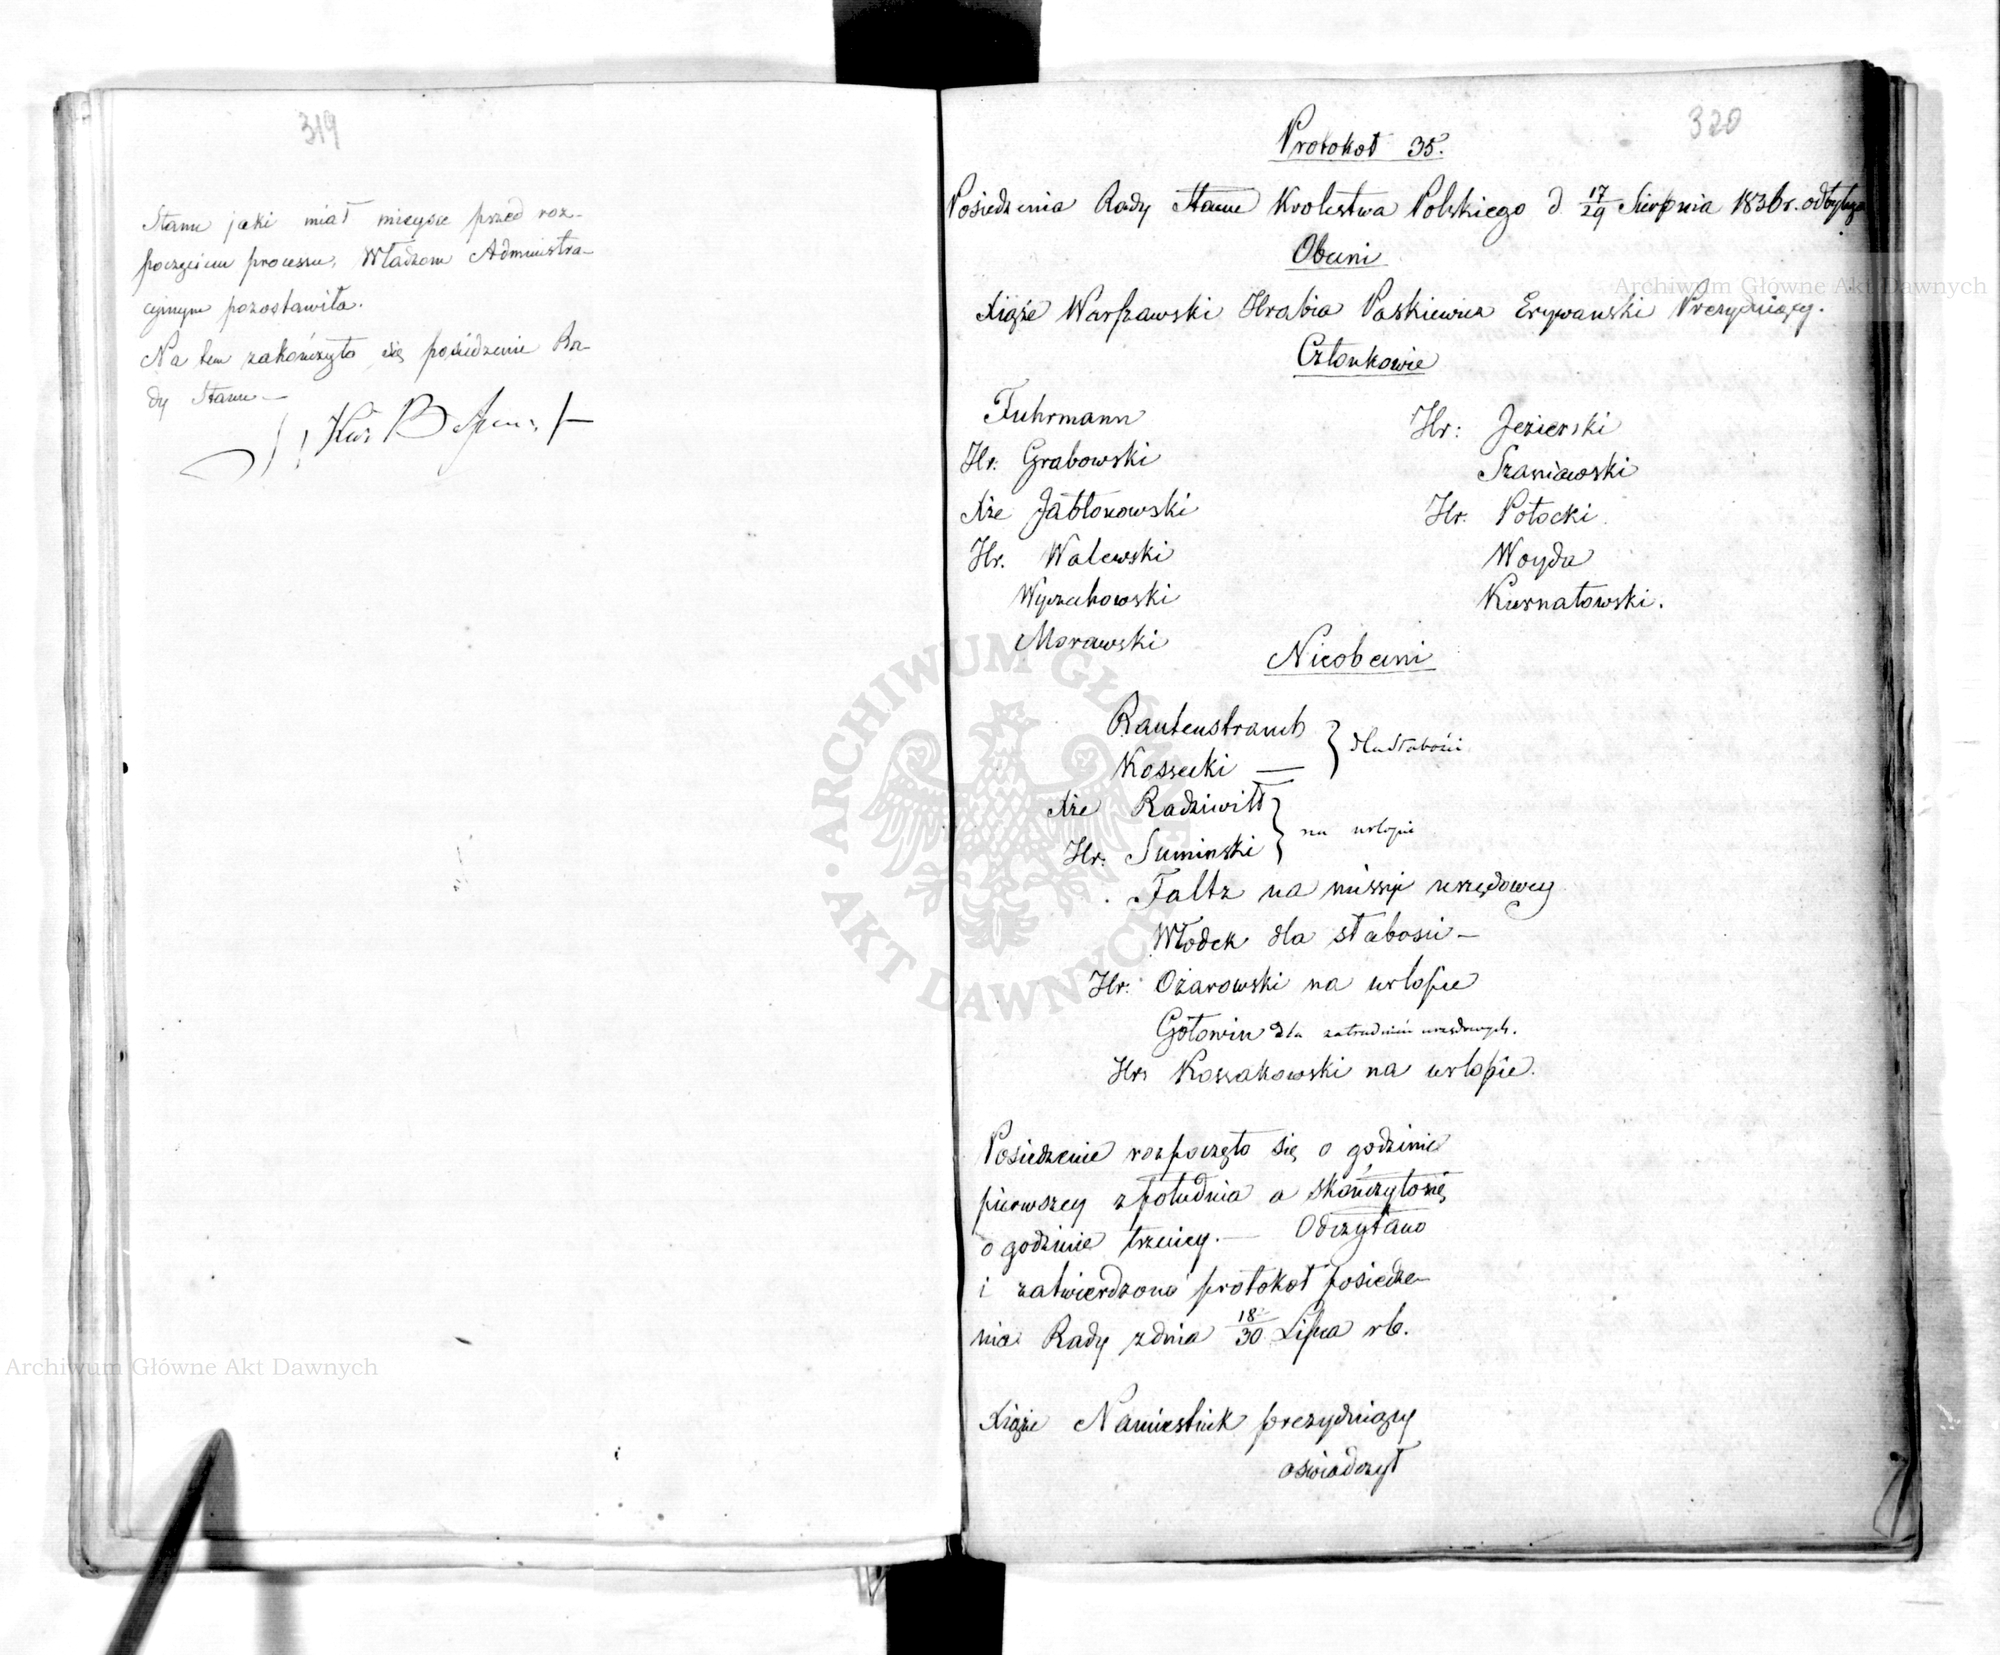 319
Stanu jaki miał mieysce przed roz-
poczęciem processu, Władzom Administra-
cyjnym pozostawiła.
Na tem zakończyło się posiedzenie Ra-
dy Stanu —
320
Protokół 35.
Posiedzenia Rady Stanu Krolestwa Polskiego d 17/29 Sierpnia 1836 r. odbytego
Obecni
Xiąże Warszawski Hrabia Paskiewicz Erywanski Prezyduiący.
Członkowie
Fuhrmann
Hr. Grabowski
Xże Jabłonowski
Hr. Walewski
Wyczechowski
Morawski
Hr: Jezierski
Szaniawski
Hr. Potocki
Woyda
Kurnatowski.
Nieobecni
Rautenstrauch
Kossecki — } dla słabości
Xże Radziwiłł
Hr: Suminski } na urlopie
Faltz na missyi urzędowey
Włodek dla słabości —
Hr: Ożarowski na urlopie
Gołowin dla zatrudnień urzędowych.
Hr: Kossakowski na urlopie.
Posiedzenie rozpoczęło się o godzinie
pierwszey z południa a skończyło się
o godzinie trzeciey. — Odczytano
i zatwierdzono protokół posiedze-
nia Rady z dnia 18/30 Lipca rb.
Xiąże Namiestnik prezyduiący
oświadczył
Archiwum Główne Akt Dawnych
Archiwum Główne Akt Dawnych
ARCHIWUM GŁÓWNE AKT DAWNYCH